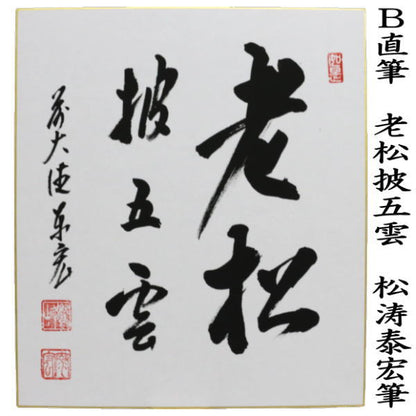 B直筆 老松披五雲 松涛泰宏筆
老松
披五雲
前大徳泰宏